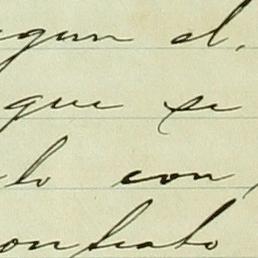 egun el.
que se
lo con
ontrato